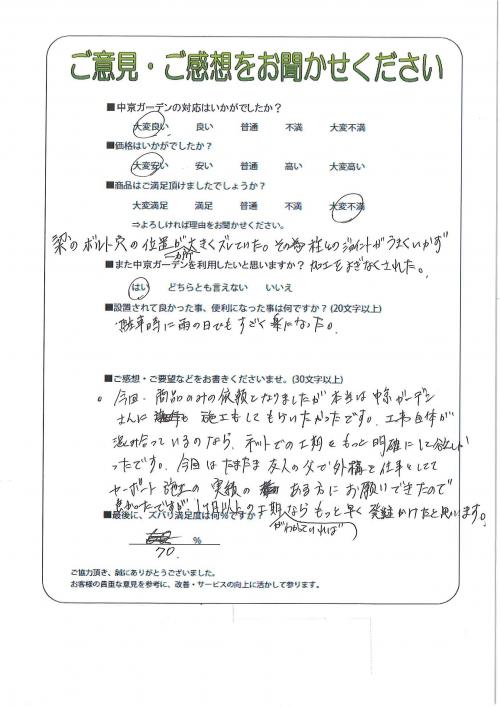 ご意見・ご感想をお聞かせください
■中京ガーデンの対応はいかがでしたか？
大変良い 良い 普通 不満 大変不満
■価格はいかがでしたか？
大変安い 安い 普通 高い 大変高い
■商品はご満足頂けましたでしょうか？
大変満足 満足 普通 不満 大変不満
⇒よろしければ理由をお聞かせください。
梁のボルト穴の位置が大きくズレていた。その為柱とのジョイントがうまくいかず
一カ所
■また中京ガーデンを利用したいと思いますか？ 加工をよぎなくされた。
はい どちらとも言えない いいえ
■設置されて良かった事、便利になった事は何ですか？(20文字以上)
駐車時に雨の日でもすごく楽になった。
■ご感想・ご要望などをお書きくださいませ。(30文字以上)
今回、商品のみの依頼となりましたが本当は中京ガーデン
さんに施工もしてもらいたかったです。工事自体が
混み合っているのなら、ネットでの工期をもっと明確にして欲し
かったです。今回はたまたま友人の父で外構を仕事としてて
カーポート施工の実績のある方にお願いできたので
良かったですが、1ヶ月以上の工期ならもっと早く発注かけたと思います。
がわかっていれば
■最後に、ズバリ満足度は何％ですか？
70 %
ご協力頂き、誠にありがとうございました。
お客様の貴重な意見を参考に、改善・サービスの向上に活かして参ります。